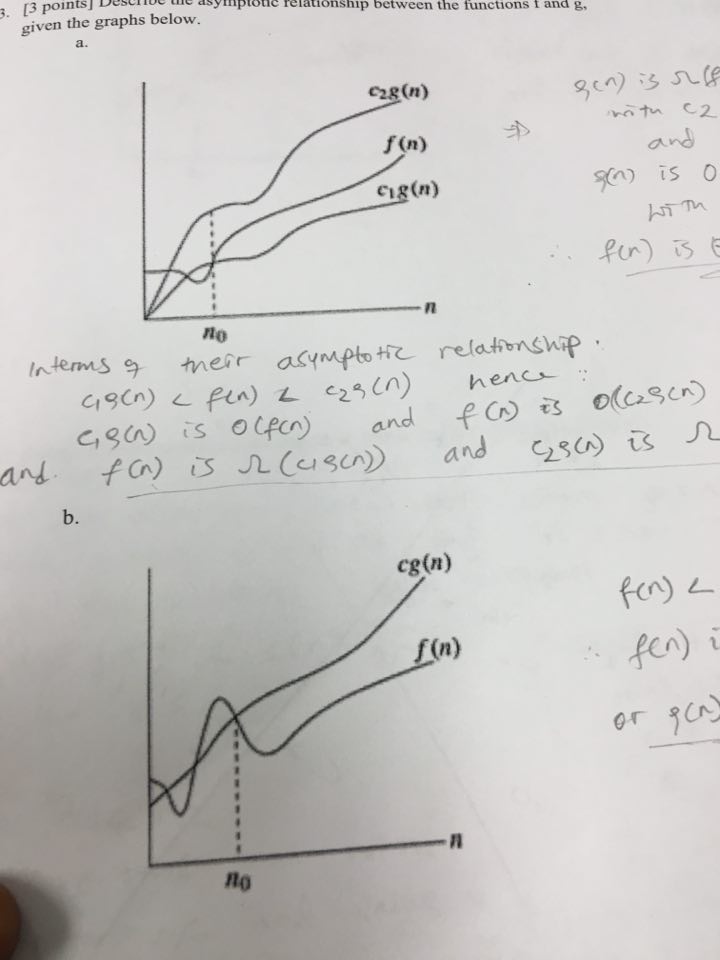 3. [3 points] Describe the asymptotic relationship between the functions f and g,
given the graphs below.
a.
c₂g(n)
f(n)
c₁g(n)
n
n₀
g(n) is Ω(f
with c2
and
g(n) is O
with
∴ f(n) is
Interms of their asymptotic relationship.
c₁g(n) < f(n) < c₂g(n) hence :
c₁g(n) is O(f(n) and f(n) is O((c₂g(n)
and. f(n) is Ω(c₁g(n)) and c₂g(n) is Ω
b.
cg(n)
f(n)
n
n₀
f(n) <
∴ f(n) i
or g(n)